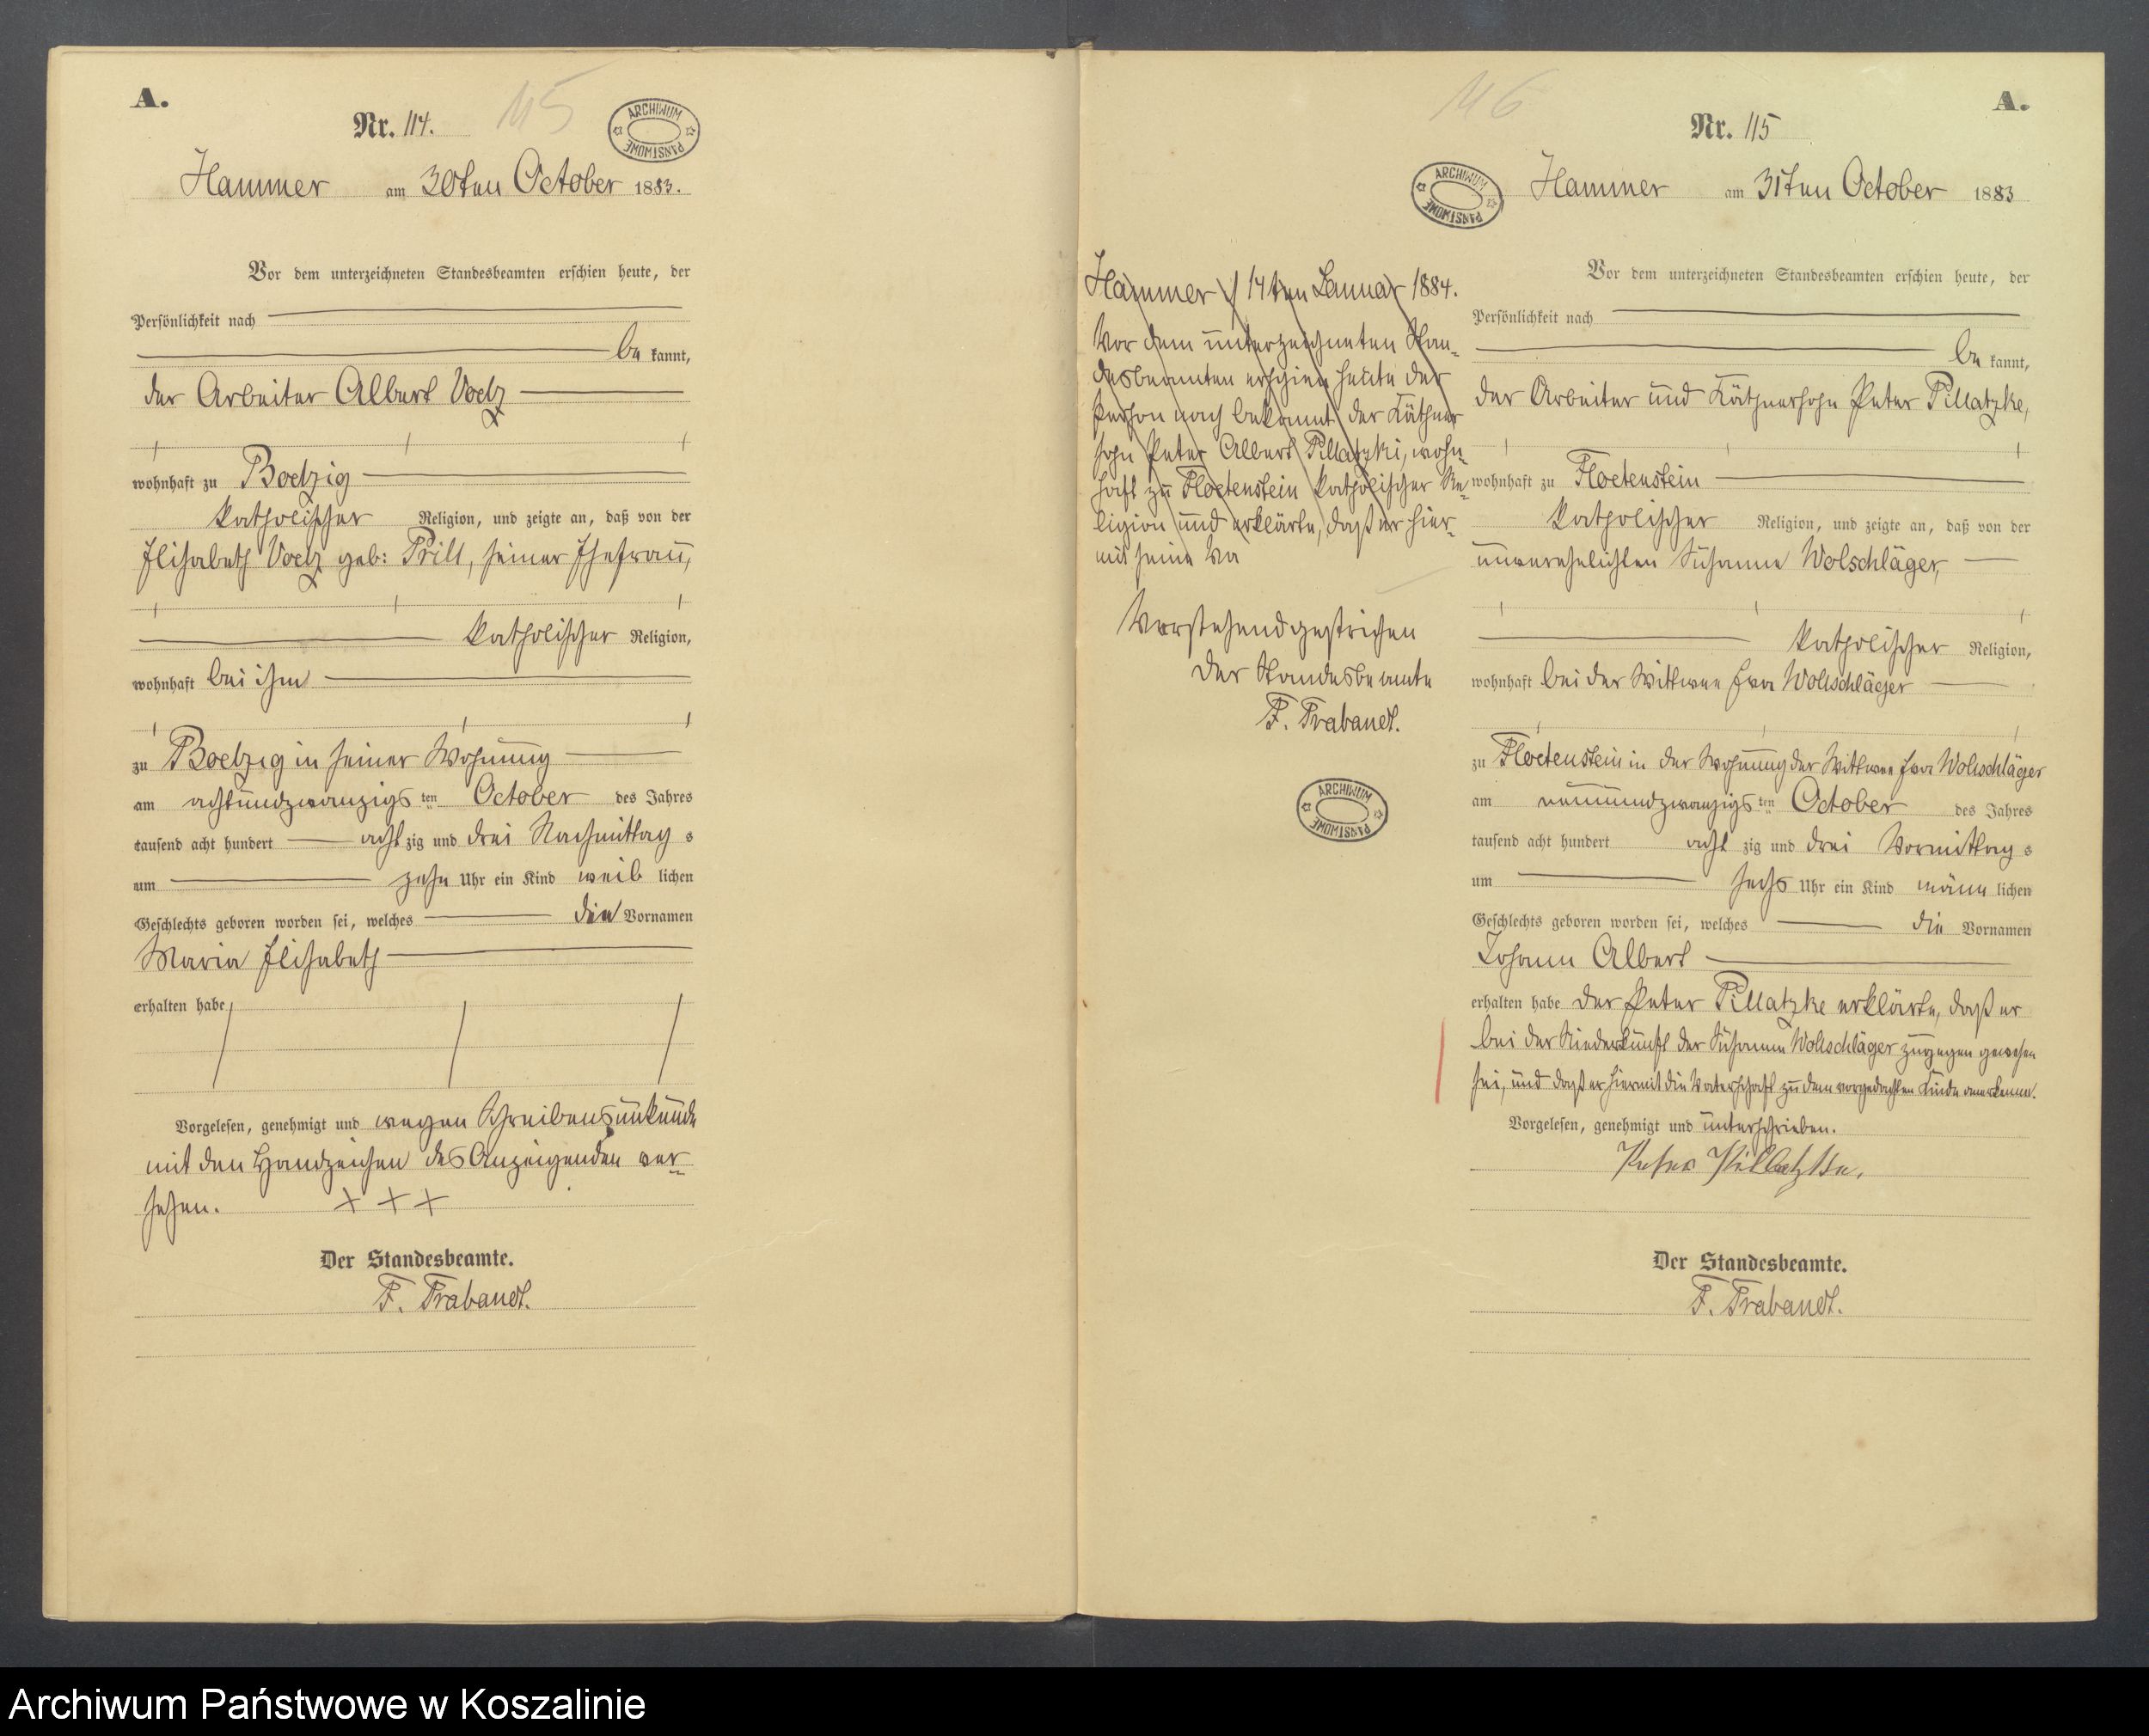 A.
Nr. 114.
115
ARCHIWUM PAŃSTWOWE
Hammer am 30ten October 1883.
Vor dem unterzeichneten Standesbeamten erschien heute, der
Persönlichkeit nach
be kannt,
der Arbeiter Albert Voelz
wohnhaft zu Boelzig
katholischer Religion, und zeigte an, daß von der
Elisabeth Voelz geb: Prill, seiner Ehefrau,
katholischer Religion,
wohnhaft bei ihm
zu Boelzig in seiner Wohnung
am achtundzwanzigs ten October des Jahres
tausend acht hundert acht zig und drei Nachmittag s
um zehn Uhr ein Kind weib lichen
Geschlechts geboren worden sei, welches die Vornamen
Maria Elisabeth
erhalten habe
Vorgelesen, genehmigt und wegen Schreibensunkunde
mit den Handzeichen des Anzeigenden ver-
sehen. + + +
Der Standesbeamte.
F. Trabandt.
A.
Nr. 115
116
ARCHIWUM PAŃSTWOWE
Hammer am 31ten October 1883
Vor dem unterzeichneten Standesbeamten erschien heute, der
Persönlichkeit nach
be kannt,
der Arbeiter und Käthnersohn Peter Pillatzke,
wohnhaft zu Floetenstein
katholischer Religion, und zeigte an, daß von der
unverehelichten Susanne Wolschläger,
katholischer Religion,
wohnhaft bei der Wittwe Eva Wollschläger
zu Floetenstein in der Wohnung der Wittwe Eva Wollschläger
am neunundzwanzigs ten October des Jahres
tausend acht hundert acht zig und drei Vormittag s
um sechs Uhr ein Kind männ lichen
Geschlechts geboren worden sei, welches die Vornamen
Johann Albert
erhalten habe der Peter Pillatzke erklärte, daß er
bei der Niederkunft der Susanne Wollschläger zugegen gewesen
sei, und daß er hiermit die Vaterschaft zu dem vorgedachten Kinde anerkenne.
Vorgelesen, genehmigt und unterschrieben.
Peter Pillatzke.
Der Standesbeamte.
F. Trabandt.
Hammer 14ten Januar 1884.
Vor dem unterzeichneten Stan-
desbeamten erschien heute der
Person nach bekannt der Käthner
sohn Peter Albert Pillatzki, wohn-
haft zu Floetenstein katholischer Re-
ligion und erklärte, daß er hier-
mit seine Va
Vorstehend gestrichen
Der Standesbeamte
F. Trabandt.
ARCHIWUM PAŃSTWOWE
Archiwum Państwowe w Koszalinie